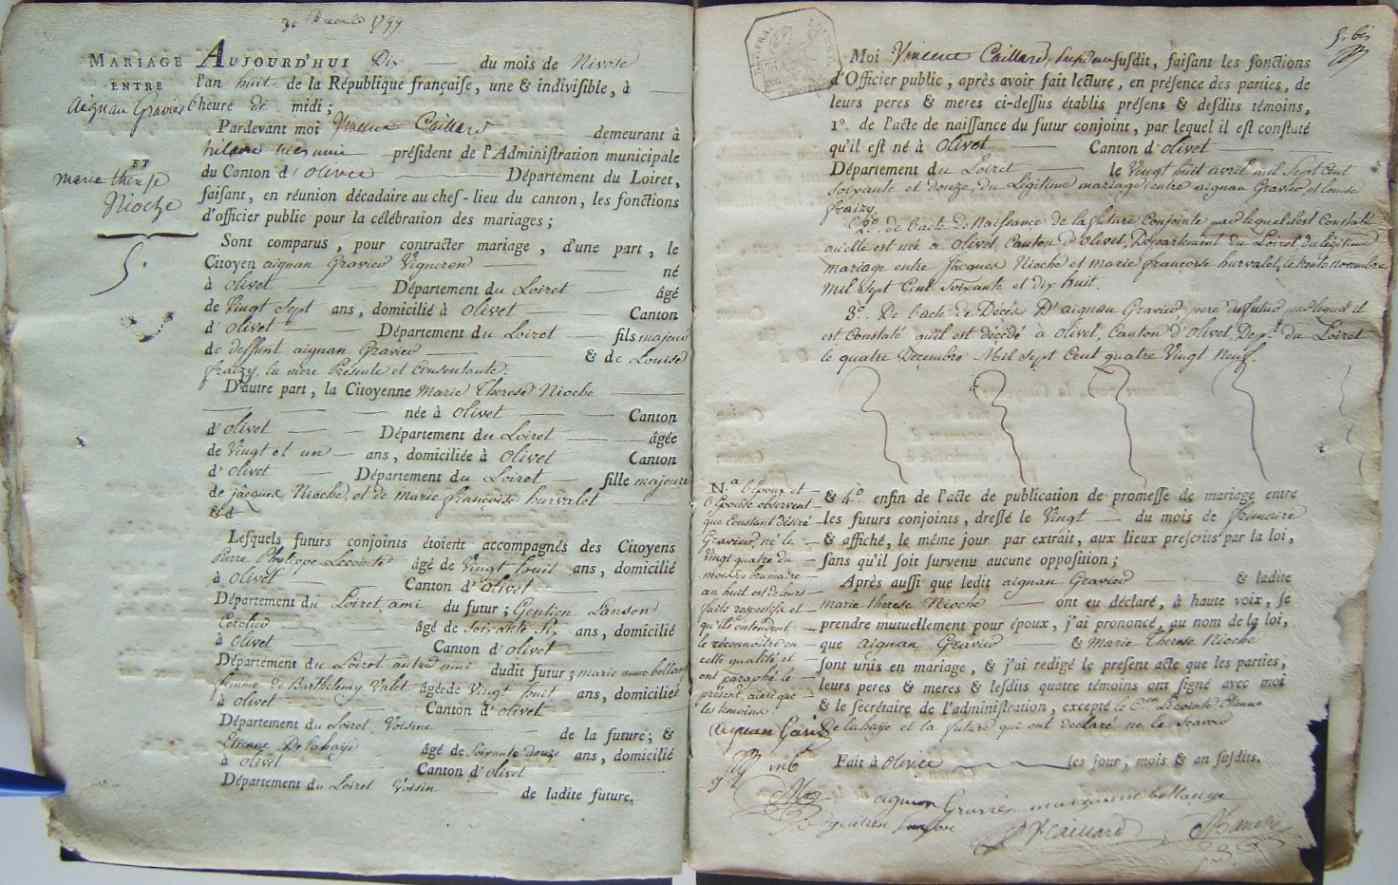 1799
MARIAGE
ENTRE
aignan Gravier
ET
marie therese
Nioche
5.
AUJOURD'HUI Dix du mois de Nivose
l'an huit de la République françaiſe, une & indiviſible, à
heure de midi;
Pardevant moi Vincent Caillard demeurant à
préſident de l'Adminiſtration municipale
du Canton d'olivet Département du Loiret,
faiſant, en réunion décadaire au chef-lieu du canton, les fonctions
d'officier public pour la célébration des mariages;
Sont comparus, pour contracter mariage, d'une part, le
Citoyen aignan Gravier Vigneron né
à olivet Département du Loiret âgé
de Vingt Sept ans, domicilié à olivet Canton
d'olivet Département du Loiret fils majeur
de deffunt aignan Gravier & de Louise
fraizy, la mere Présente et Consentante.
D'autre part, la Citoyenne Marie Therese Nioche
née à olivet Canton
d'olivet Département du Loiret âgée
de Vingt et un ans, domiciliée à olivet Canton
d'olivet Département du Loiret fille majeure
de jacques Nioche, et de marie françoise hurvalet
Leſquels futurs conjoints étoient accompagnés des Citoyens
Pierre Philippe Lecointe âgé de Vingt huit ans, domicilié
à olivet Canton d'olivet
Département du Loiret, ami du futur; Gentien Lanson
âgé de Soixante Six ans, domicilié
à olivet Canton d'olivet
Département du Loiret autre ami dudit futur; marie anne bellan
femme de Barthelemy Valet âgée de Vingt huit ans, domiciliée
à olivet Canton d'olivet
Département du Loiret Voisine de la future; &
Etienne Delahaye âgé de Soixante douze ans, domicilié
à olivet Canton d'olivet
Département du Loiret Voisin de ladite future.
5. bis
Moi Vincent Caillard, ſuſdit, faiſant les fonctions
d'Officier public, après avoir fait lecture, en préſence des parties, de
leurs peres & meres ci-deſſus établis préſens & deſdits témoins,
1°. de l'acte de naiſſance du futur conjoint, par lequel il eſt conſtaté
qu'il eſt né à Olivet Canton d'olivet
Département du Loiret le Vingt huit avril mil Sept Cent
Soixante et douze, du Légitime mariage entre aignan Gravier et Louise
fraizy
2°. de l'acte de Naissance de la future Conjointe par lequel il est Constaté
quelle est née à Olivet, Canton d'olivet, Departement du Loiret du légitime
mariage entre Jacques Nioche et marie francoise hurvalet, le trente novembre
mil Sept Cent Soixante et dix huit.
3°. De l'acte de Décès D'aignan Gravier pere du futur par lequel il
est Constaté qu'il est décédé à olivet, Canton d'Olivet Dep.t du Loiret
le quatre Decembre Mil Sept Cent quatre Vingt Neuf.
& 4°. enfin de l'acte de publication de promeſſe de mariage entre
les futurs conjoints, dreſſé le Vingt du mois de frimaire
& affiché, le même jour par extrait, aux lieux preſcrits par la loi,
ſans qu'il ſoit ſurvenu aucune oppoſition;
Après auſſi que ledit aignan Gravier & ladite
marie therese Nioche ont eu déclaré, à haute voix, ſe
prendre mutuellement pour époux, j'ai prononcé, au nom de la loi,
que Aignan Gravier & Marie Therese Nioche
ſont unis en mariage, & j'ai redigé le préſent acte que les parties,
leurs peres & meres & leſdits quatre témoins ont ſigné avec moi
& le ſecrétaire de l'adminiſtration, excepté le Cen Lecointe Etienne
Delahaye et la future qui ont déclaré ne le Scavoir
Fait à Olivet les jour, mois & an ſuſdits.
N.a L'époux et
L'épouse observent
que Constant désiré
Gravier, né le
Vingt quatre du
mois de brumaire
an huit est de leurs
faits respectifs et
qu'ils entendent
le reconnoître en
cette qualité et
ont paraphé le
présent ainsi que
les temoins
aignan Gravier
Caillard